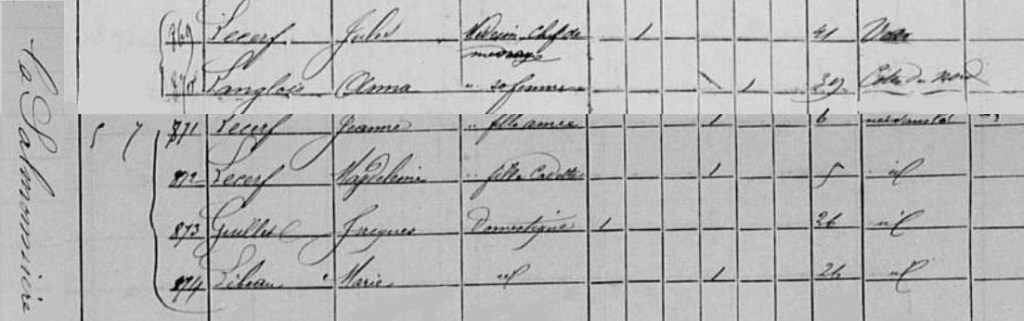 869 Lecerf Jules Médecin Chef de ménage 1 41
870 Langlois Anna " sa femme 1 39 Côtes du Nord
La 5 7 871 Lecerf Jeanne " fille ainée 1 6
872 Lecerf Magdeleine " fille Cadette 1 5 id
873 Guillet Jacques Domestique 1 26 id
874 Marie id 1 26 id